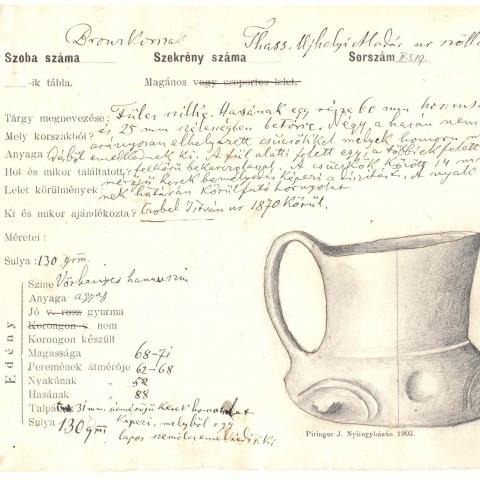 Bronzkorszak Thass. Ujhelyi Madár ur szőllő
Szoba száma Szekrény száma Sorszám II.5.19.
-ik tábla. Magános vagy csoportos lelet.
Tárgy megnevezése: Füles csésze. Hasának egy része 60 mm hosszus
Mely korszakból? és 25 mm szélességben betörve. Négy a hasán nem
arányosan elhelyezett csúcsökkel melyek homoru
Anyaga emelkednek ki. A fül alatti felett egy a többiek felett
Hol és mikor találtatott? félkörü bekarczolással. A csúcsok között 14 m
Lelet körülmények: kerek bemélyedés képezi a díszítést. A nyak
nek határán körülfutó hornyolat
Ki és mikor ajándékozta? István ur 1870 körül.
Méretei:
Sulya: 130 grm.
Edény
Szine Vöröshenyes hamuszin
Anyaga agyag
Jó v. rosz gyurma
Korongon v. nem
Korongon készült
Magassága 68-71
Peremének átmérője 62-68
Nyakának " 52
Hasának " 88
Talpának 31 mm. átmérőjű kerek
Sulya 130 grm képezi, melyből egy
lapos
Piringer J. Nyiregyházán 1903.